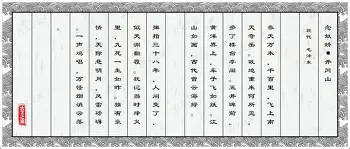 念奴娇●井冈山
现代 毛泽东
参天万木,千百里,飞上南
天奇岳。故地重来何所见,
多了楼台亭阁。五井碑前,
黄洋界上,车子飞如跃。江
山如画,古代曾云海绿。
弹指三十八年,人间变了,
似天渊翻覆。犹记当时烽火
里,九死一生如昨。独有豪
情,天际悬明月,风雷磅礴
。一声鸡唱,万怪烟消云落
。